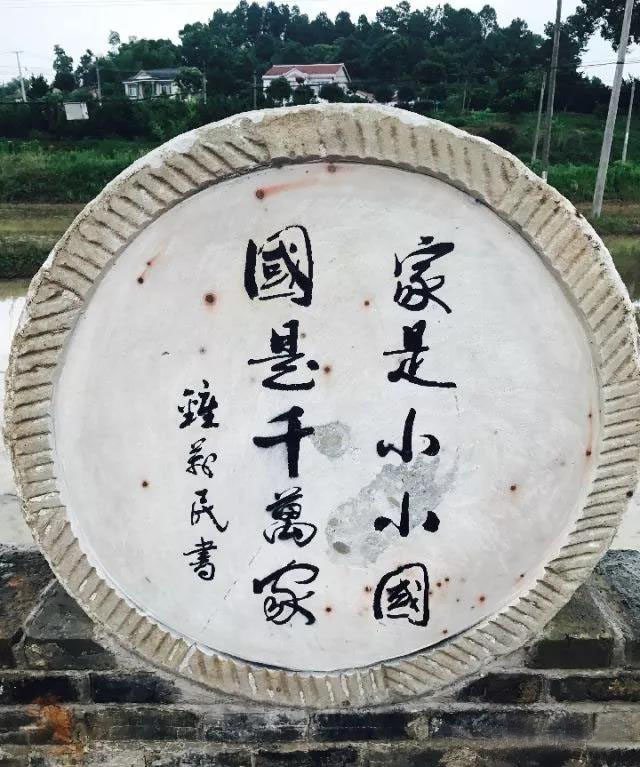 家是小小國
國是千萬家
鍾 民書